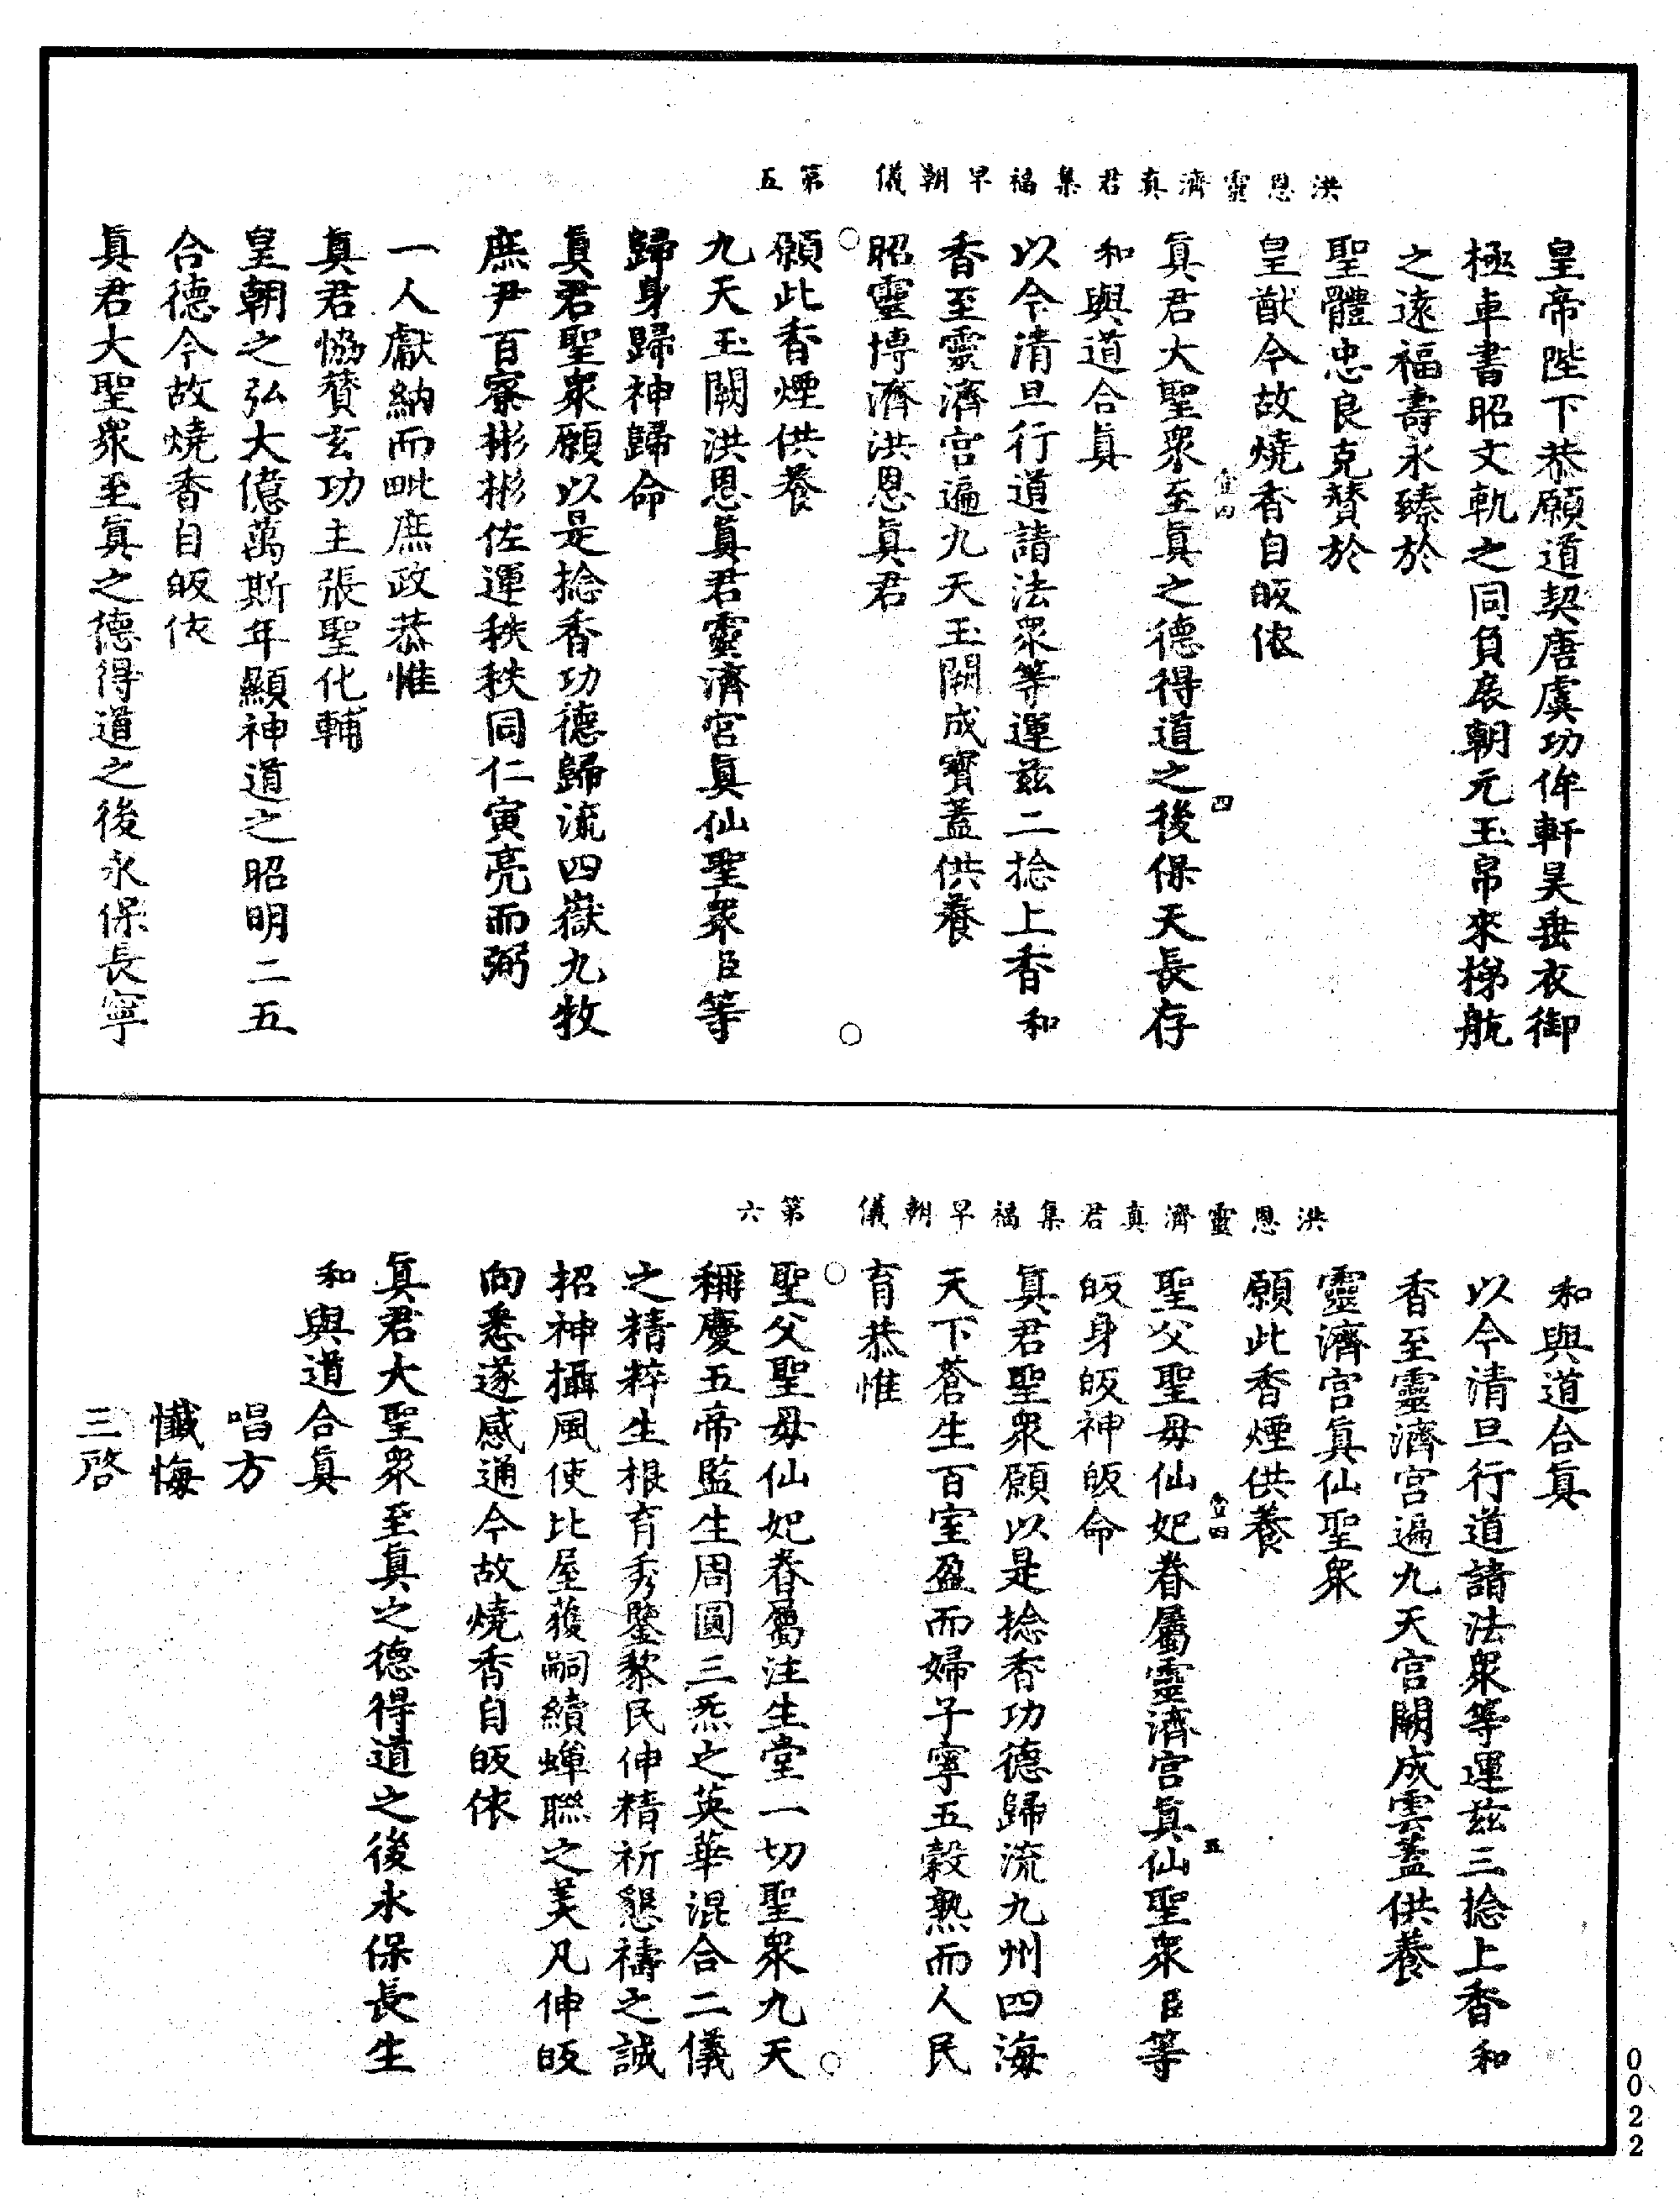 洪恩靈濟真君集福早朝儀　第五
皇帝陛下恭願道契唐虞功侔軒昊垂衣御
極車書昭文軌之同負扆朝元玉帛來梯航
之遠福壽永臻於
聖體忠良克贊於
皇猷今故燒香自皈依
真君大聖眾至真之德得道之後保天長存
四
和與道合真
以今清旦行道諸法眾等運茲二捻上香和
香至靈濟宮遍九天玉闕成寶蓋供養
昭靈博濟洪恩真君
願此香煙供養
九天玉闕洪恩真君靈濟宮真仙聖眾臣等
歸身歸神歸命
真君聖眾願以是捻香功德歸流四嶽九牧
庶尹百寮彬彬佐運秩秩同仁寅亮而弼
一人獻納而毗庶政恭惟
真君恊贊玄功主張聖化輔
皇朝之弘大億萬斯年顯神道之昭明二五
合德今故燒香自皈依
真君大聖眾至真之德得道之後永保長寧
洪恩靈濟真君集福早朝儀　第六
和與道合真
以今清旦行道諸法眾等運茲三捻上香和
香至靈濟宮遍九天宮闕成雲蓋供養
靈濟宮真仙聖眾
願此香煙供養
聖父聖母仙妃眷屬靈濟宮真仙聖眾臣等
五
皈身皈神皈命
真君聖眾願以是捻香功德歸流九州四海
天下蒼生百室盈而婦子寧五穀熟而人民
育恭惟
聖父聖母仙妃眷屬注生堂一切聖眾九天
稱慶五帝監生周圓三炁之英華混合二儀
之精粹生根育秀鑒黎民伸精祈懇禱之誠
招神攝風使比屋獲嗣續蟬聯之美凡伸皈
向悉遂感通今故燒香自皈依
真君大聖眾至真之德得道之後永保長生
和與道合真
唱方
懺悔
三啓
0022